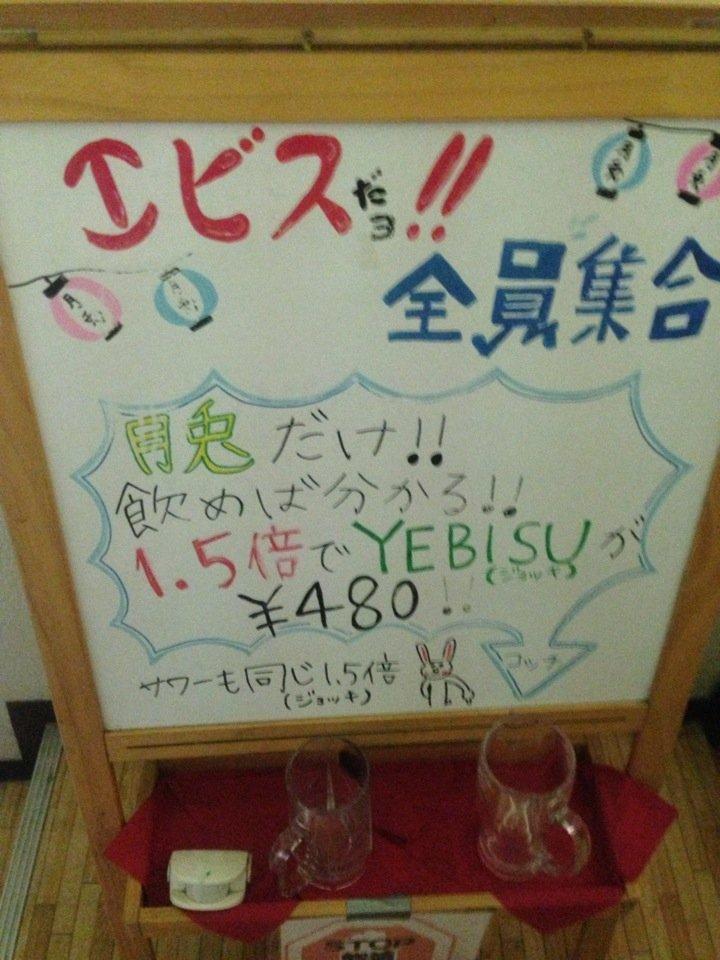 エビスだョ!!
全員集合
月兎 月兎
月兎だけ!!
飲めば分かる!!
1.5倍でYEBISUが
(ジョッキ)
¥480!!
コッチ
サワーも同じ1.5倍
(ジョッキ)
STOP